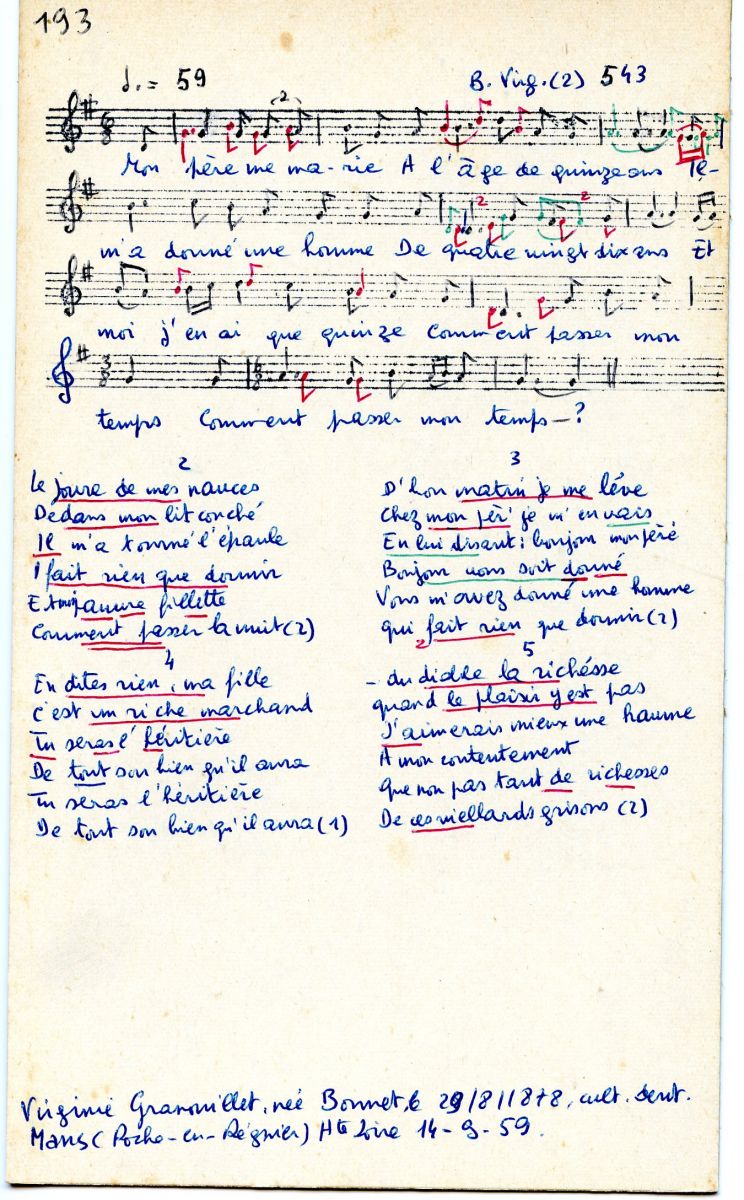 193
♩. = 59
B. Virg. (2) 543
Mon père me ma-rie A l'âge de quinze ans Il-
m'a donné une homme De quatre vingt dix ans Et
moi j'en ai que quinze Comment passer mon
temps Comment passer mon temps-?
2
Le joure de mes nauces
Dedans mon lit couché
Il m'a tourné l'épaule
I fait rien que dormir
Et moi pauvre fillette
Comment passer la nuit (2)
3
D'bon matin je me léve
Chez mon pèr' je m'en vais
En lui disant: bonjour mon péré
Bonjour vous soit donné
Vous m'avez donné une homme
Qui fait rien que dormir (2)
4
En dites rien, ma fille
C'est un riche marchand
Tu seras l'héritière
De tout son bien qu'il aura
Tu seras l'héritière
De tout son bien qu'il aura (1)
5
- du diable la richésse
quand le plaisir y est pas
J'aimerais mieux une haume
A mon contentement
Que non pas tant de richesses
De ces viellards grisons (2)
Virginie Granouillet, née Bonnet, le 29/8/1878, cult. dent.
Mans (Roche-en-Régnier) Hte Loire 14-9-59.